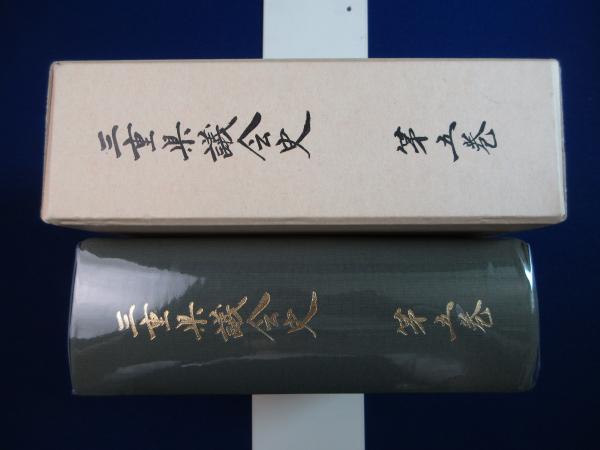 三重県議会史 第五巻
三重県議会史 第五巻